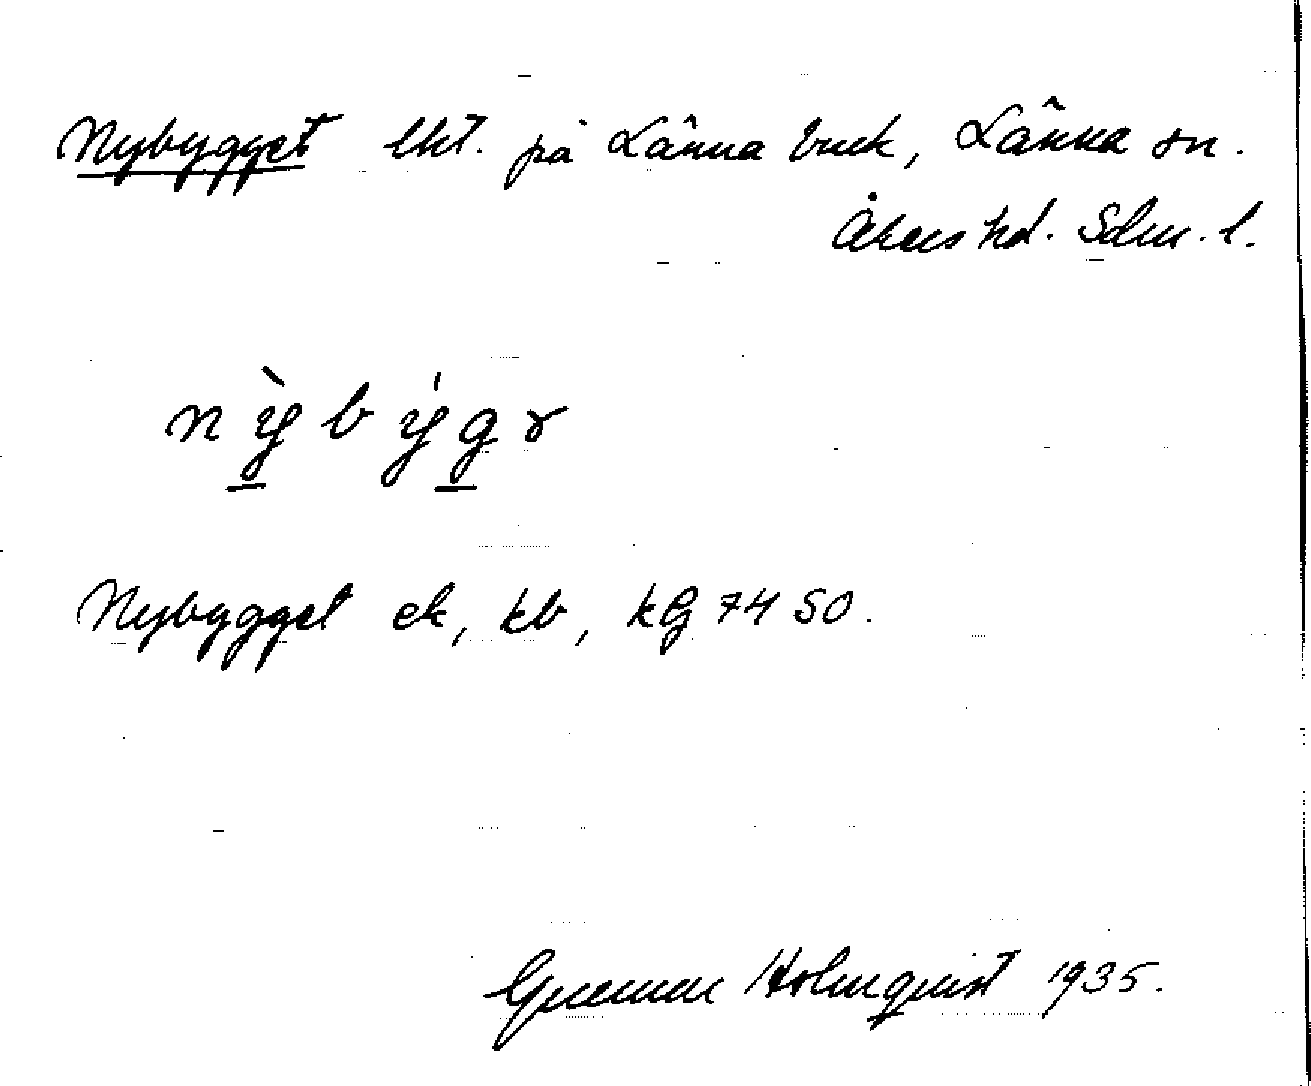 Nybygget lht. på Länna bruk, Länna sn.
Åkers hd. Sdm. l.
nỳbýgɤ
Nybygget ek, kb, kG 7450.
Gunnar Holmquist 1935.